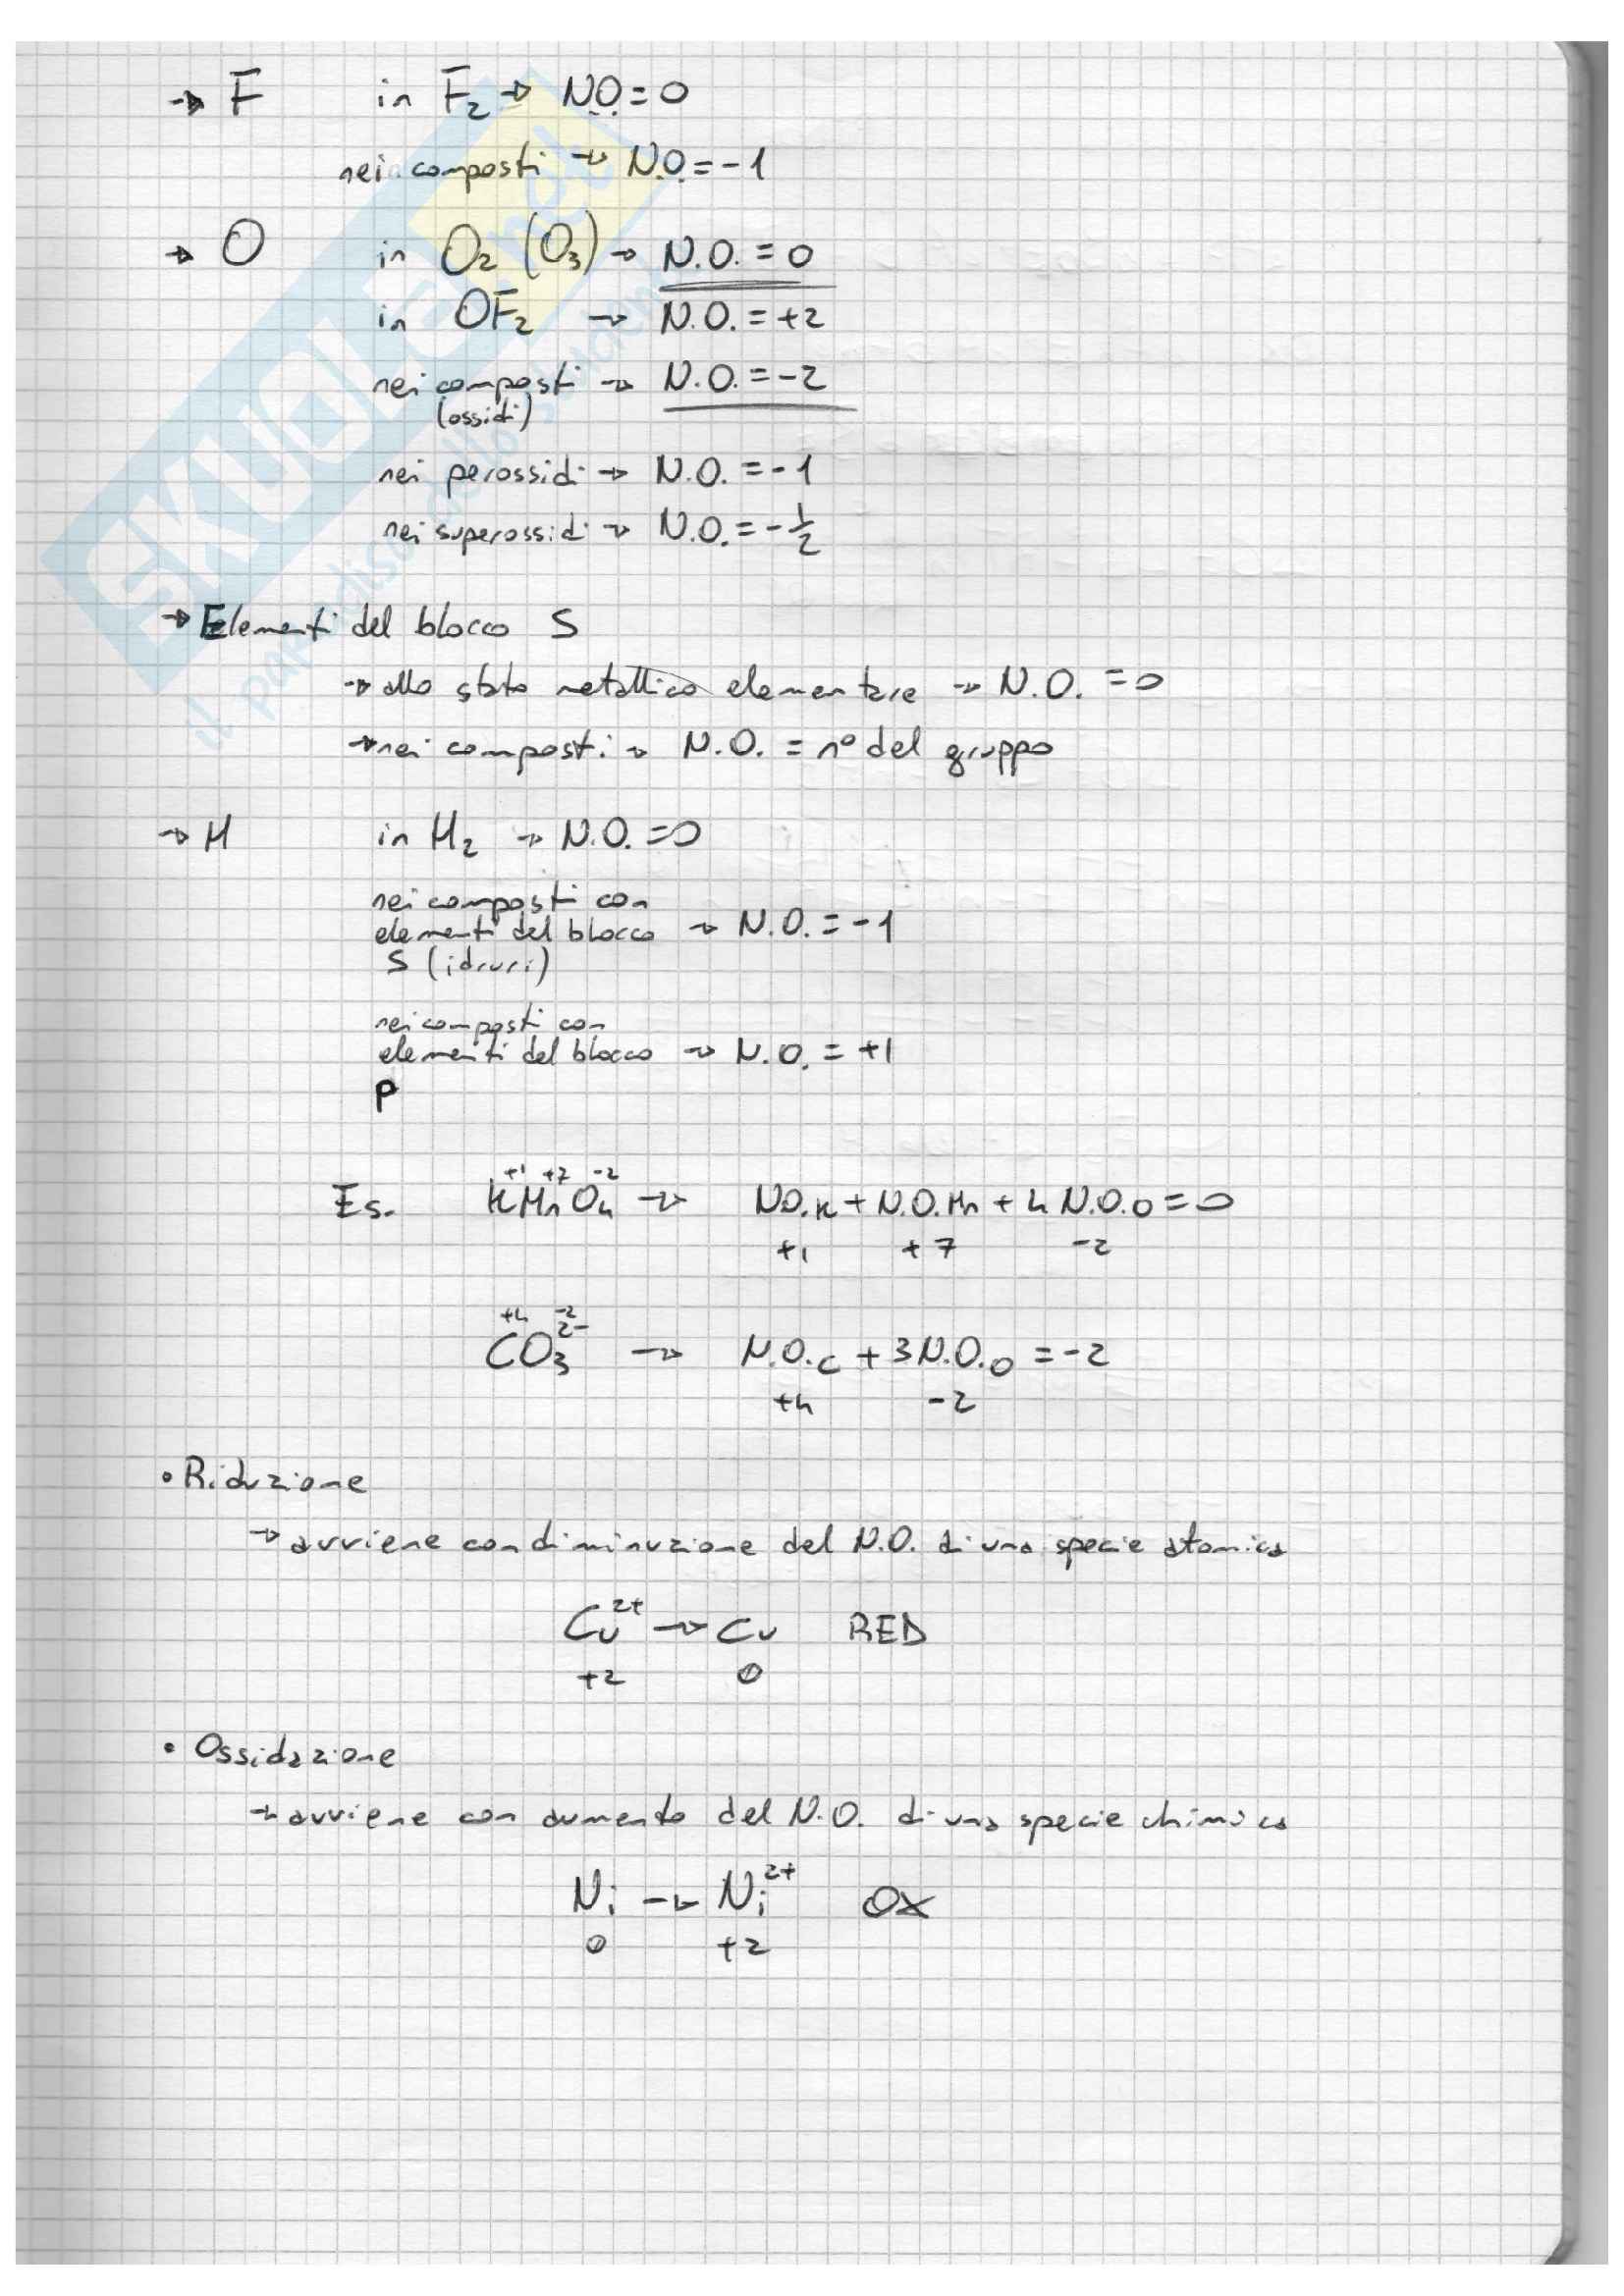 → F in F₂ → N.O. = 0
nei composti → N.O. = -1
→ O in O₂ (O₃) → N.O. = 0
in OF₂ → N.O. = +2
nei composti → N.O. = -2
(ossidi)
nei perossidi → N.O. = -1
nei superossidi → N.O. = -1/2
→ Elementi del blocco S
→ allo stato metallico elementare → N.O. = 0
→ nei composti → N.O. = n° del gruppo
→ H in H₂ → N.O. = 0
nei composti con
elementi del blocco → N.O. = -1
S (idruri)
nei composti con
elementi del blocco → N.O. = +1
P
+1 +7 -2
Es. KMnO₄ → N.O.K + N.O.Mn + 4 N.O.O = 0
+1 +7 -2
+4 -2
CO₃²⁻ → N.O.C + 3 N.O.O = -2
+4 -2
• Riduzione
→ avviene con diminuzione del N.O. di una specie atomica
Cu²⁺ → Cu RED
+2 0
• Ossidazione
→ avviene con aumento del N.O. di una specie chimica
Ni → Ni²⁺ OX
0 +2
SKUOLA.net
il paradiso dello studente